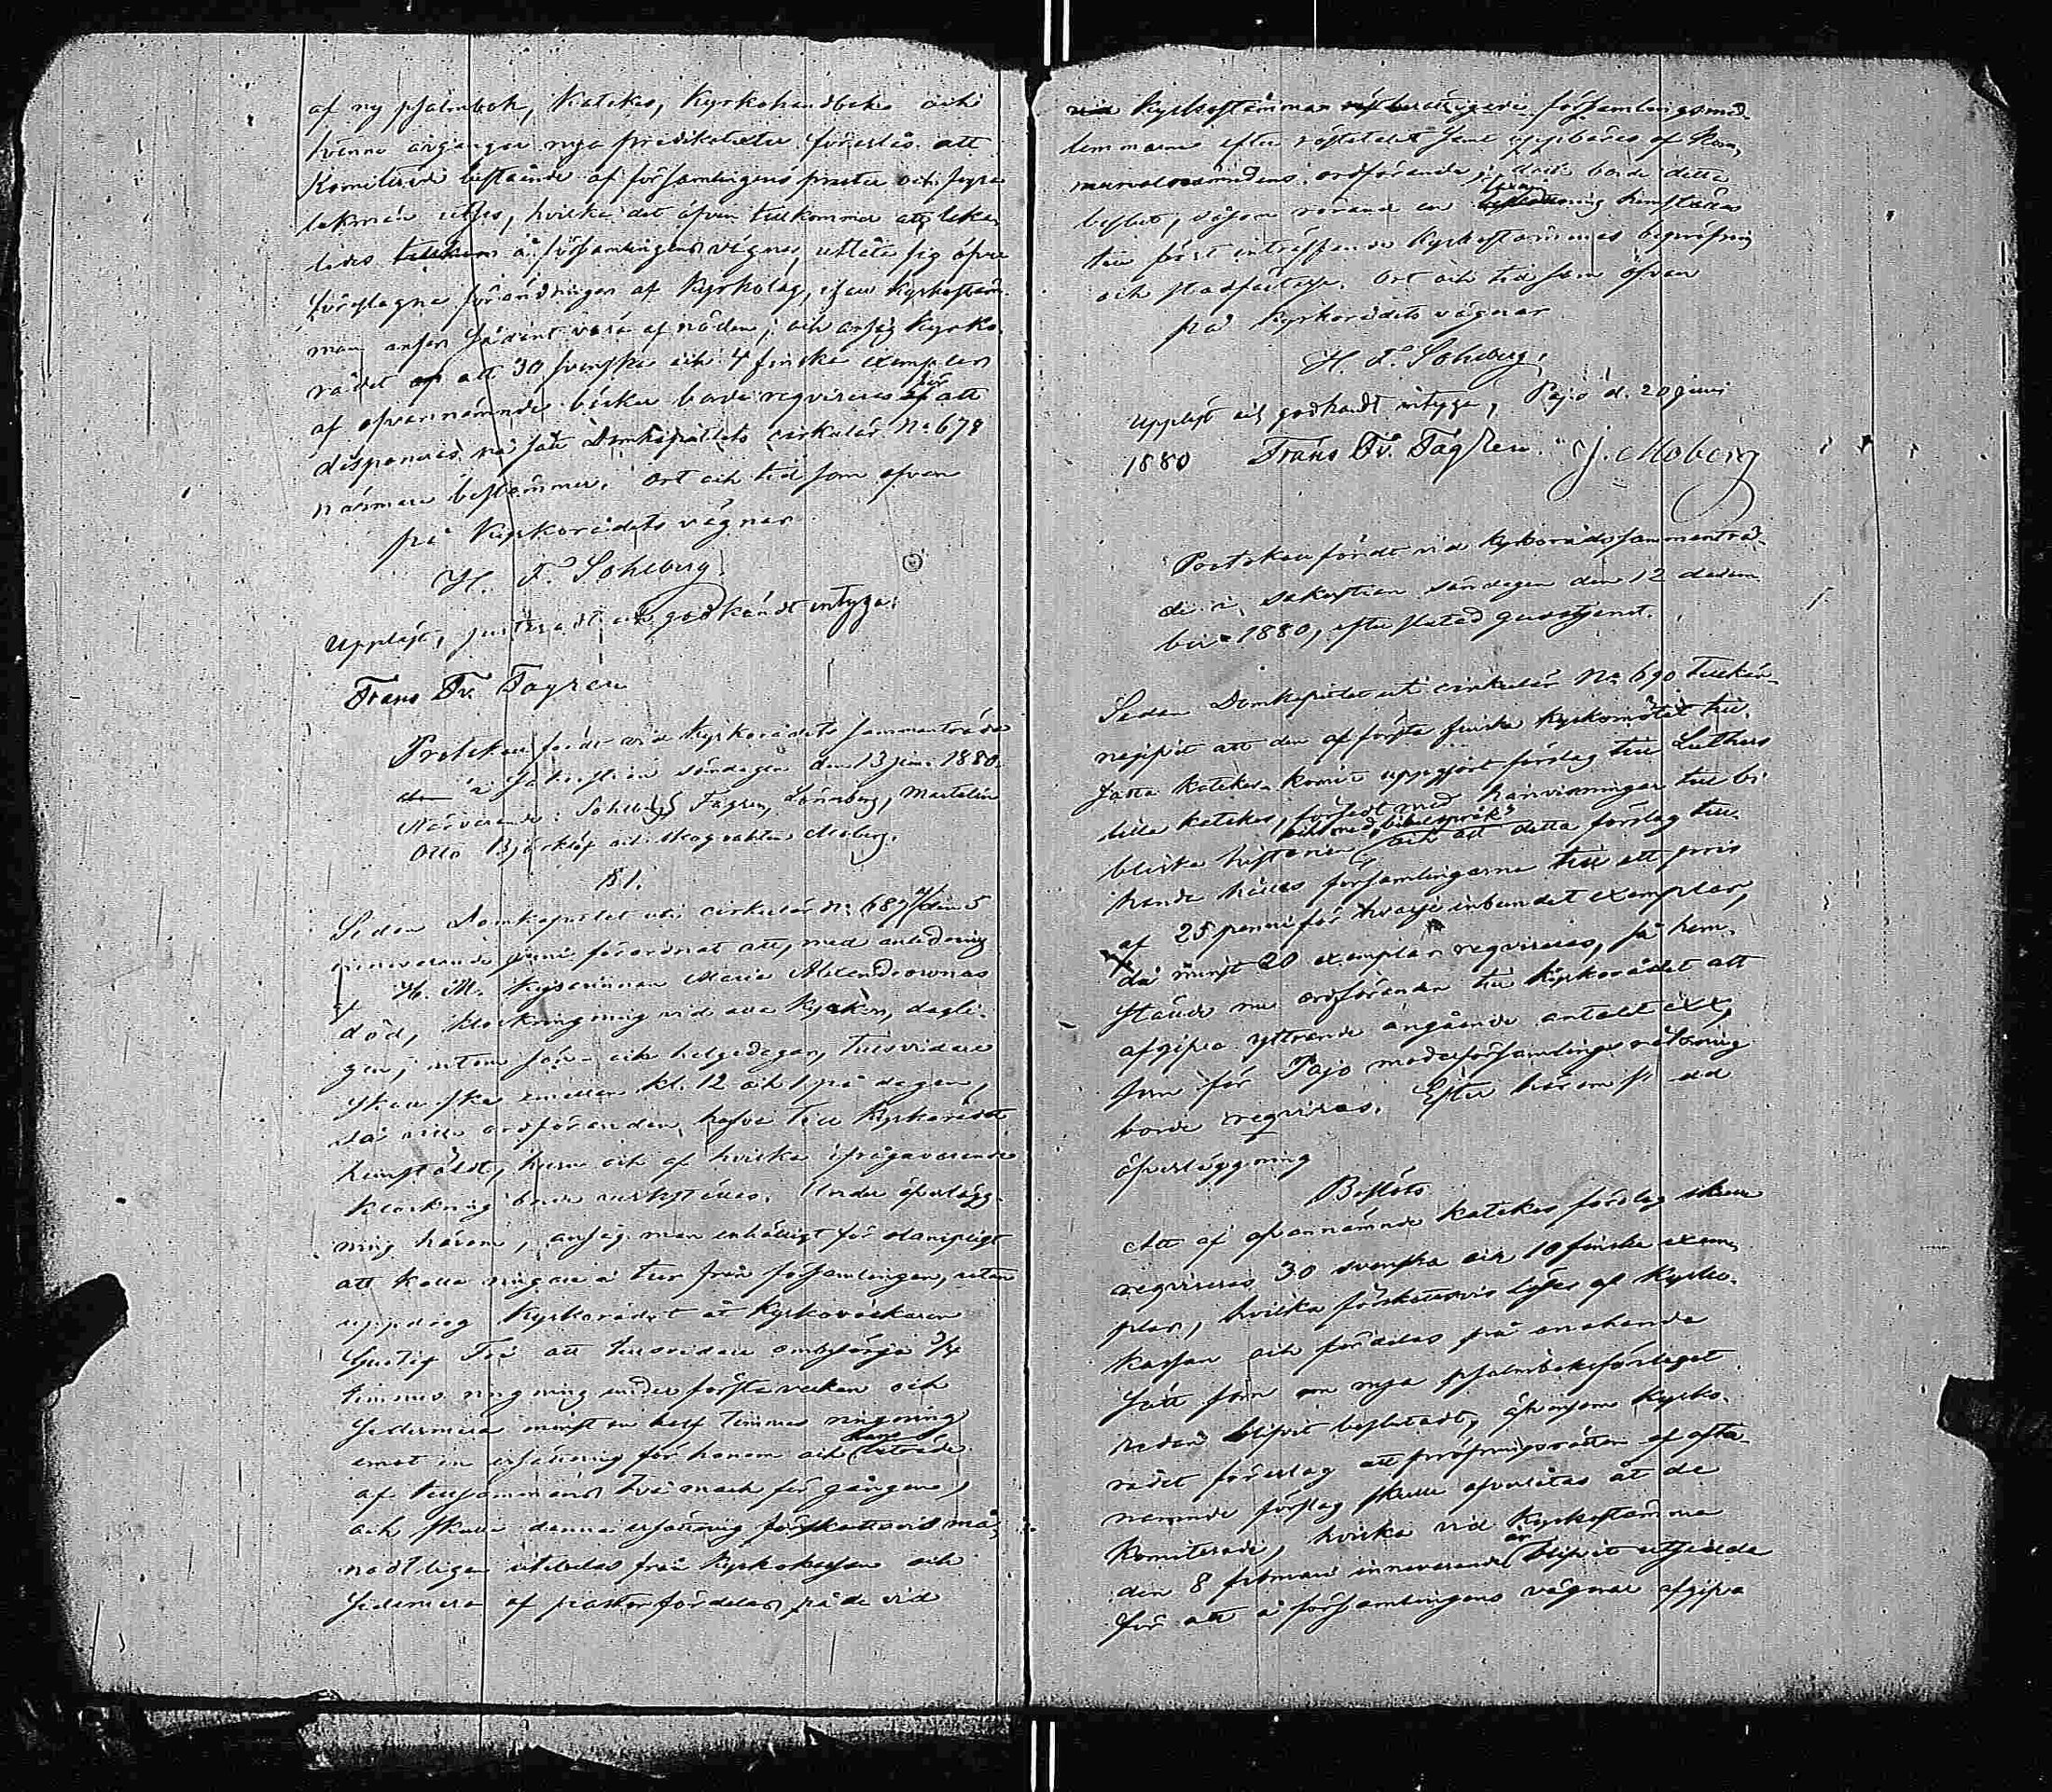 af ny psalmbok, Katekes, Kyrkohandboken och
trenne årgångar nya predikotexter föreslås att
Komiterade bestående af församlingens prester och fyra
lekmän utses, hvilka det äfven tillkommer att lika-
ledes å församlingens vägnar utlåta sig öfver
föreslagna förändringar af Kyrkolag, ifall Kyrkostäm-
man anser sådant vara af nöden; och ansåg Kyrko-
rådet att 30 svenska och 4 finska exemplar
af ofvannämnde böcker borde reqvireras för att
disponeras på sätt Domkapitlets cirkulär No 678
närmare bestämmer. Ort och tid som ofvan
på Kyrkorådets vägnar
H. F. Sohlberg.
Uppläst, justeradt och godkändt intyga:
Frans Fr. Fagren
Protokoll fördt vid Kyrkorådets sammanträde
i Sakristian söndagen den 13 juni 1880.
Närvarande: Sohlberg, Fagren, Lönnberg, Martelin
Otto Björklöf och Skogvakten Moberg.
§ 1.
Sedan Domkapitlet uti cirkulär No 687 den 5
innevarande juni förordnat att, med anledning
af H. M. Kejsarinnan Maria Alexandrownas
död, klockringning vid alla kyrkor, dagli-
gen, utom sön- och helgedagar, tillsvidare
ske ska emellan kl. 12 och 1 på dagen,
så ville ordföranden hafva till Kyrkorådet
hemstäldt, huru och af hvilka ifrågavarande
klockning borde verkställas. Under öfverlägg-
ning härom, ansåg man enhälligt för olämpligt
att kalla ringare i tur från församlingen, utan
uppdrog Kyrkorådet åt Kyrkoväktaren
Gustaf Fri att tillsvidare ombesörja 3/4
timmes ringning under första veckan och
sedermera minst en half timmes ringning
emot en ersättning för honom och hans biträde
af tillsammans två mark för gången,
och skulle denna ersättning förskottsvis må-
nadtligen utbetalas från Kyrkokassan och
sedermera af pastor fördelas på de vid
Kyrkostämman röstberättigade församlingsmed-
lemmarne efter röstetalet samt uppbäras af Kom-
munalnämndens ordförande, dock borde detta
beslut, såsom rörande en taxering hemställas
till först inträffande Kyrkostämmas bepröfning
och stadfästelse. Ort och tid som ofvan
på Kyrkorådets vägnar
H. F. Sohlberg.
Uppläst och godkändt intyga, Pojo d. 20 juni
1880 Frans Fr. Fagren. J. Moberg
Protokoll fördt vid Kyrkorådssammanträ-
de i sakristian söndagen den 12 decem-
ber 1880, efter slutad gudstjenst.
Sedan Domkapitlet uti cirkulär No 690 tillkän-
nagifvit att den af första finska kyrkomötet till-
satta Katekes-komité uppgjort förslag till Luthers
lilla katekes, försedt med hänvisningar till bi-
bliska historien och med bibelspråk och att detta förslag till-
handahålles församlingarna till ett pris
af 25 penni för hvarje inbundet exemplar,
då minst 20 exemplar reqvireras, så hem-
stälde nu ordföranden till Kyrkorådet att
afgifva yttrande angående antalet exx,
som för Pojo moderförsamlings räkning
borde reqvireras. Efter härom skedd
öfverläggning
Beslöts
Att af ofvannämnde katekes förslag skulle
reqvireras 30 svenska och 10 finska exem-
plar, hvilka förskottsvis lösas af Kyrko-
kassan och fördelas på enahanda
sätt som om nya psalmboksförslaget
redan blifvit beslutadt, äfvensom Kyrko-
rådet föreslog att pröfningsrätten af ofta-
nämnde förslag skulle öfverlåtas åt de
Komiterade, hvilka vid Kyrkostämma
den 8 februari innevarande år blifvit utsedda
för att å församlingens vägnar afgifva